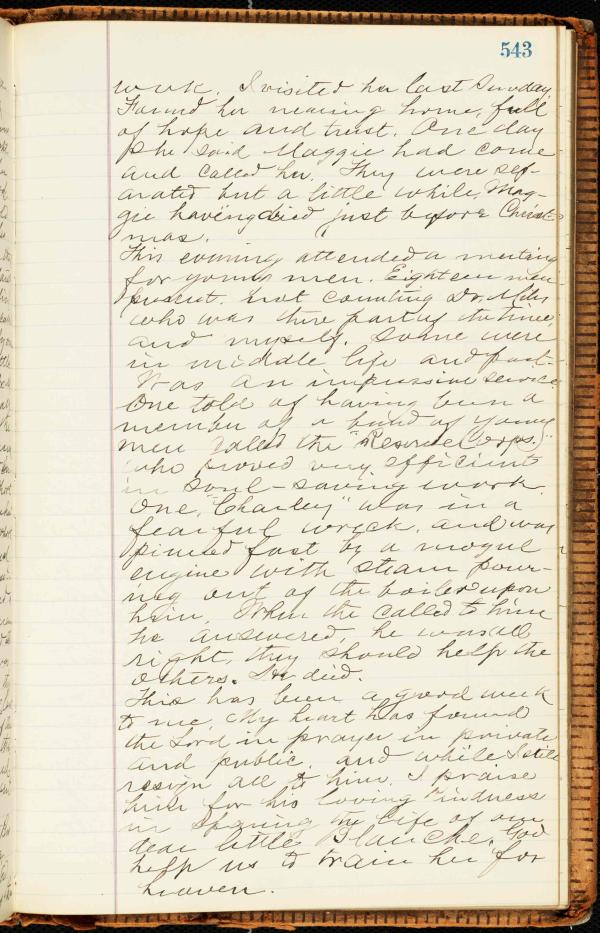 543
week. I visited her last Sunday,
Found her nearing home, full
of hope and trust. One day
she said Maggie had come
and called her. They were sep-
arated but a little while, Mag-
gie having died just before Christ-
mas.
This evening attended a meeting
for young men. Eighteen men
present, not counting Dr. Miles
who was there part of the time,
and myself. Some were
in middle life and past.
Was an impressive service.
One told of having been a
member of a band of young
men called the "Rescue Corps."
who proved very efficient
in soul-saving work.
One, "Charley" was in a
fearful wreck, and was
pinned fast by a mogul
engine with steam pour-
ing out of the boiler upon
him. When the called to him
he answered, he was all
right, they should help the
others. He died.
This has been a good week
to me. My heart has found
the Lord in prayer in private
and public, and while I still
resign all to him, I praise
him for his loving kindness
in sparing the life of our
dear little Blanche. God
help us to train her for
heaven.